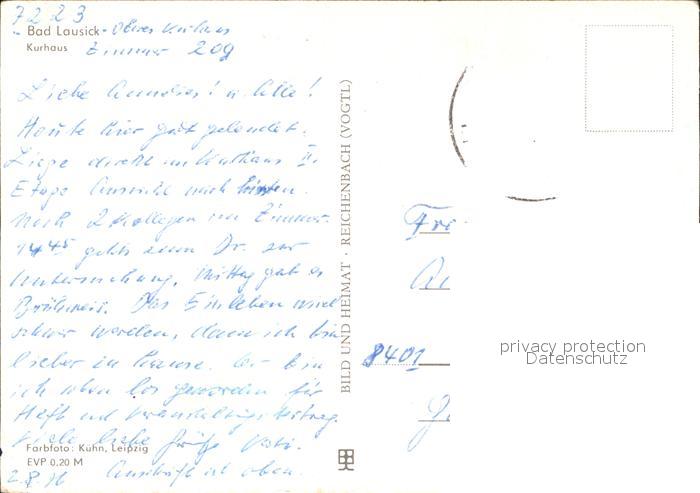 7223
Bad Lausick - Oberes Kurhaus
Kurhaus Zimmer 209
Liebe Annelies! u. Alle!
Heute hier gut gelandet.
Liege direkt im Kurhaus II.
Etage Aussicht nach hinten.
Noch 2 Kollegen im Zimmer.
14 45 gehts zum Dr. zur
Untersuchung. Mittag gab es
Das Einleben wird
schwer werden, denn ich bin
lieber zu Hause. bin
ich eben los geworden für
Heft und
Viele liebe Grüße Vati.
Farbfoto: Kühn, Leipzig
EVP 0,20 M
Anschrift ist oben.
BILD UND HEIMAT · REICHENBACH (VOGTL)
8401
privacy protection
Datenschutz